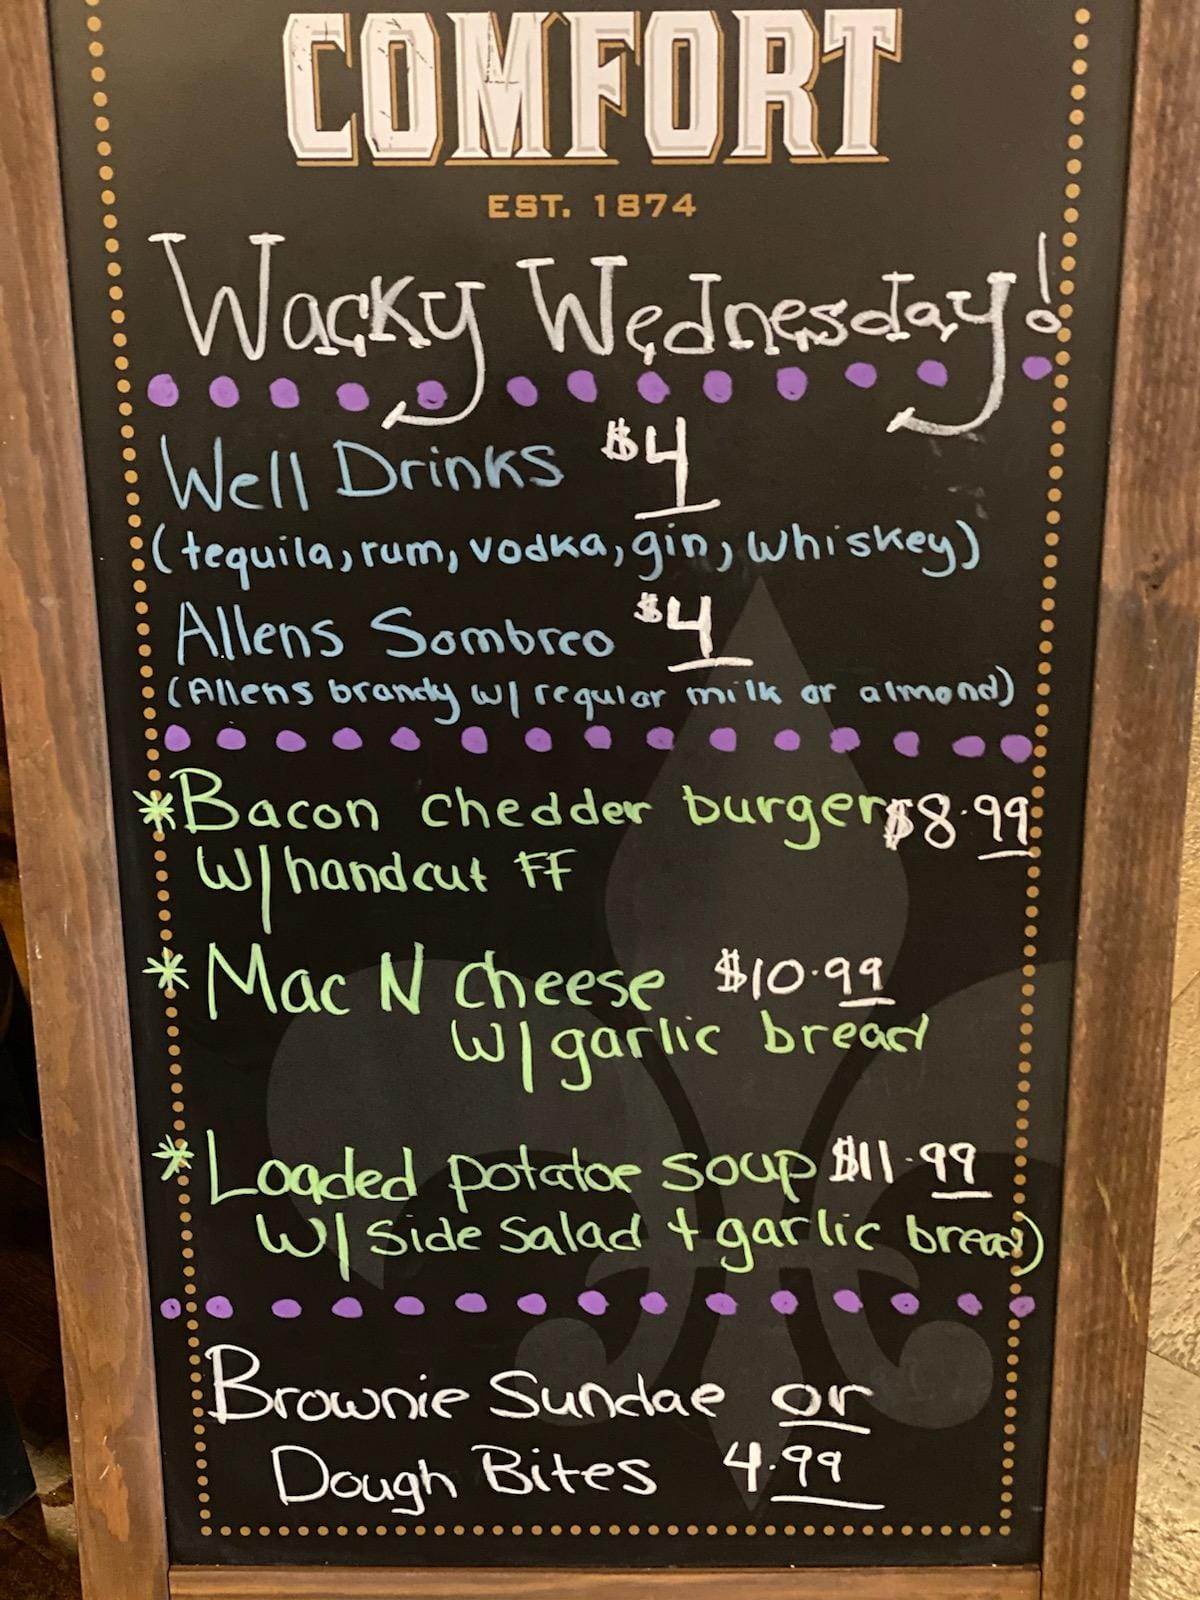 COMFORT
EST. 1874
Wacky Wednesday!
Well Drinks $4
(tequila, rum, vodka, gin, whiskey)
Allens Sombreo $4
(Allens brandy w/ regular milk or almond)
*Bacon chedder burger $8.99
W/handcut FF
*Mac N cheese $10.99
W/garlic bread
*Loaded potatoe soup $11.99
W/side salad + garlic bread)
Brownie Sundae or
Dough Bites 4.99